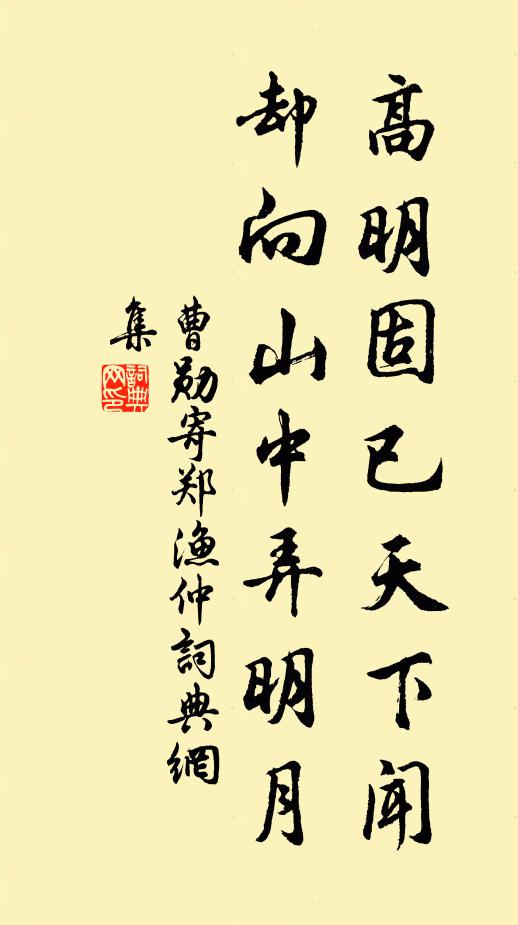 高明固已天下闻
却向山中弄明月
曹勋寄郑渔仲詞典網
集
詞典网印